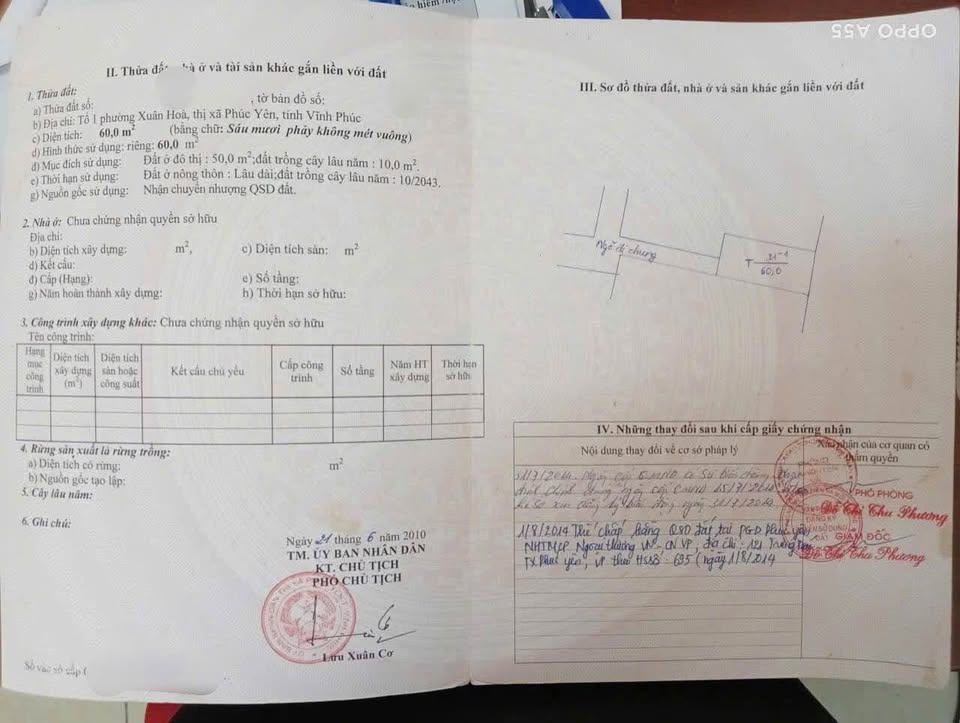 OPPO A55
II. Thửa đấ nhà ở và tài sản khác gắn liền với đất
1. Thửa đất:
a) Thửa đất số: , tờ bản đồ số:
b) Địa chỉ: Tổ 1 phường Xuân Hoà, thị xã Phúc Yên, tỉnh Vĩnh Phúc
c) Diện tích: 60,0 m² (bằng chữ: Sáu mươi phảy không mét vuông)
d) Hình thức sử dụng: riêng: 60,0 m²
đ) Mục đích sử dụng: Đất ở đô thị : 50,0 m²;đất trồng cây lâu năm : 10,0 m².
e) Thời hạn sử dụng: Đất ở nông thôn : Lâu dài;đất trồng cây lâu năm : 10/2043.
g) Nguồn gốc sử dụng: Nhận chuyển nhượng QSD đất.
2. Nhà ở: Chưa chứng nhận quyền sở hữu
Địa chỉ:
b) Diện tích xây dựng: m², c) Diện tích sàn: m²
d) Kết cấu:
đ) Cấp (Hạng): e) Số tầng:
g) Năm hoàn thành xây dựng: h) Thời hạn sở hữu:
3. Công trình xây dựng khác: Chưa chứng nhận quyền sở hữu
Tên công trình:
Hạng mục công trình
Diện tích xây dựng (m²)
Diện tích sàn hoặc công suất
Kết cấu chủ yếu
Cấp công trình
Số tầng
Năm HT xây dựng
Thời hạn sở hữu
4. Rừng sản xuất là rừng trồng:
a) Diện tích có rừng: m²
b) Nguồn gốc tạo lập:
5. Cây lâu năm:
6. Ghi chú:
Ngày 21 tháng 6 năm 2010
TM. ỦY BAN NHÂN DÂN
KT. CHỦ TỊCH
PHÓ CHỦ TỊCH
Lưu Xuân Cơ
Số vào sổ cấp
III. Sơ đồ thửa đất, nhà ở và sản khác gắn liền với đất
Ngõ đi chung
T 31-1
60,0
IV. Những thay đổi sau khi cấp giấy chứng nhận
Nội dung thay đổi về cơ sở pháp lý
Xác nhận của cơ quan có thẩm quyền
PHÓ PHÒNG
Đỗ Thị Thu Phương
1/8/2014 Thế chấp bằng QSD đất tại PGD Phúc Yên
NHTMCP Ngoại thương VN - CN VP, địa chỉ: 121 Trưng
TX Phúc Yên, VP theo HSSố: 695 (ngày 1/8/2014
GIÁM ĐỐC
Đỗ Thị Thu Phương